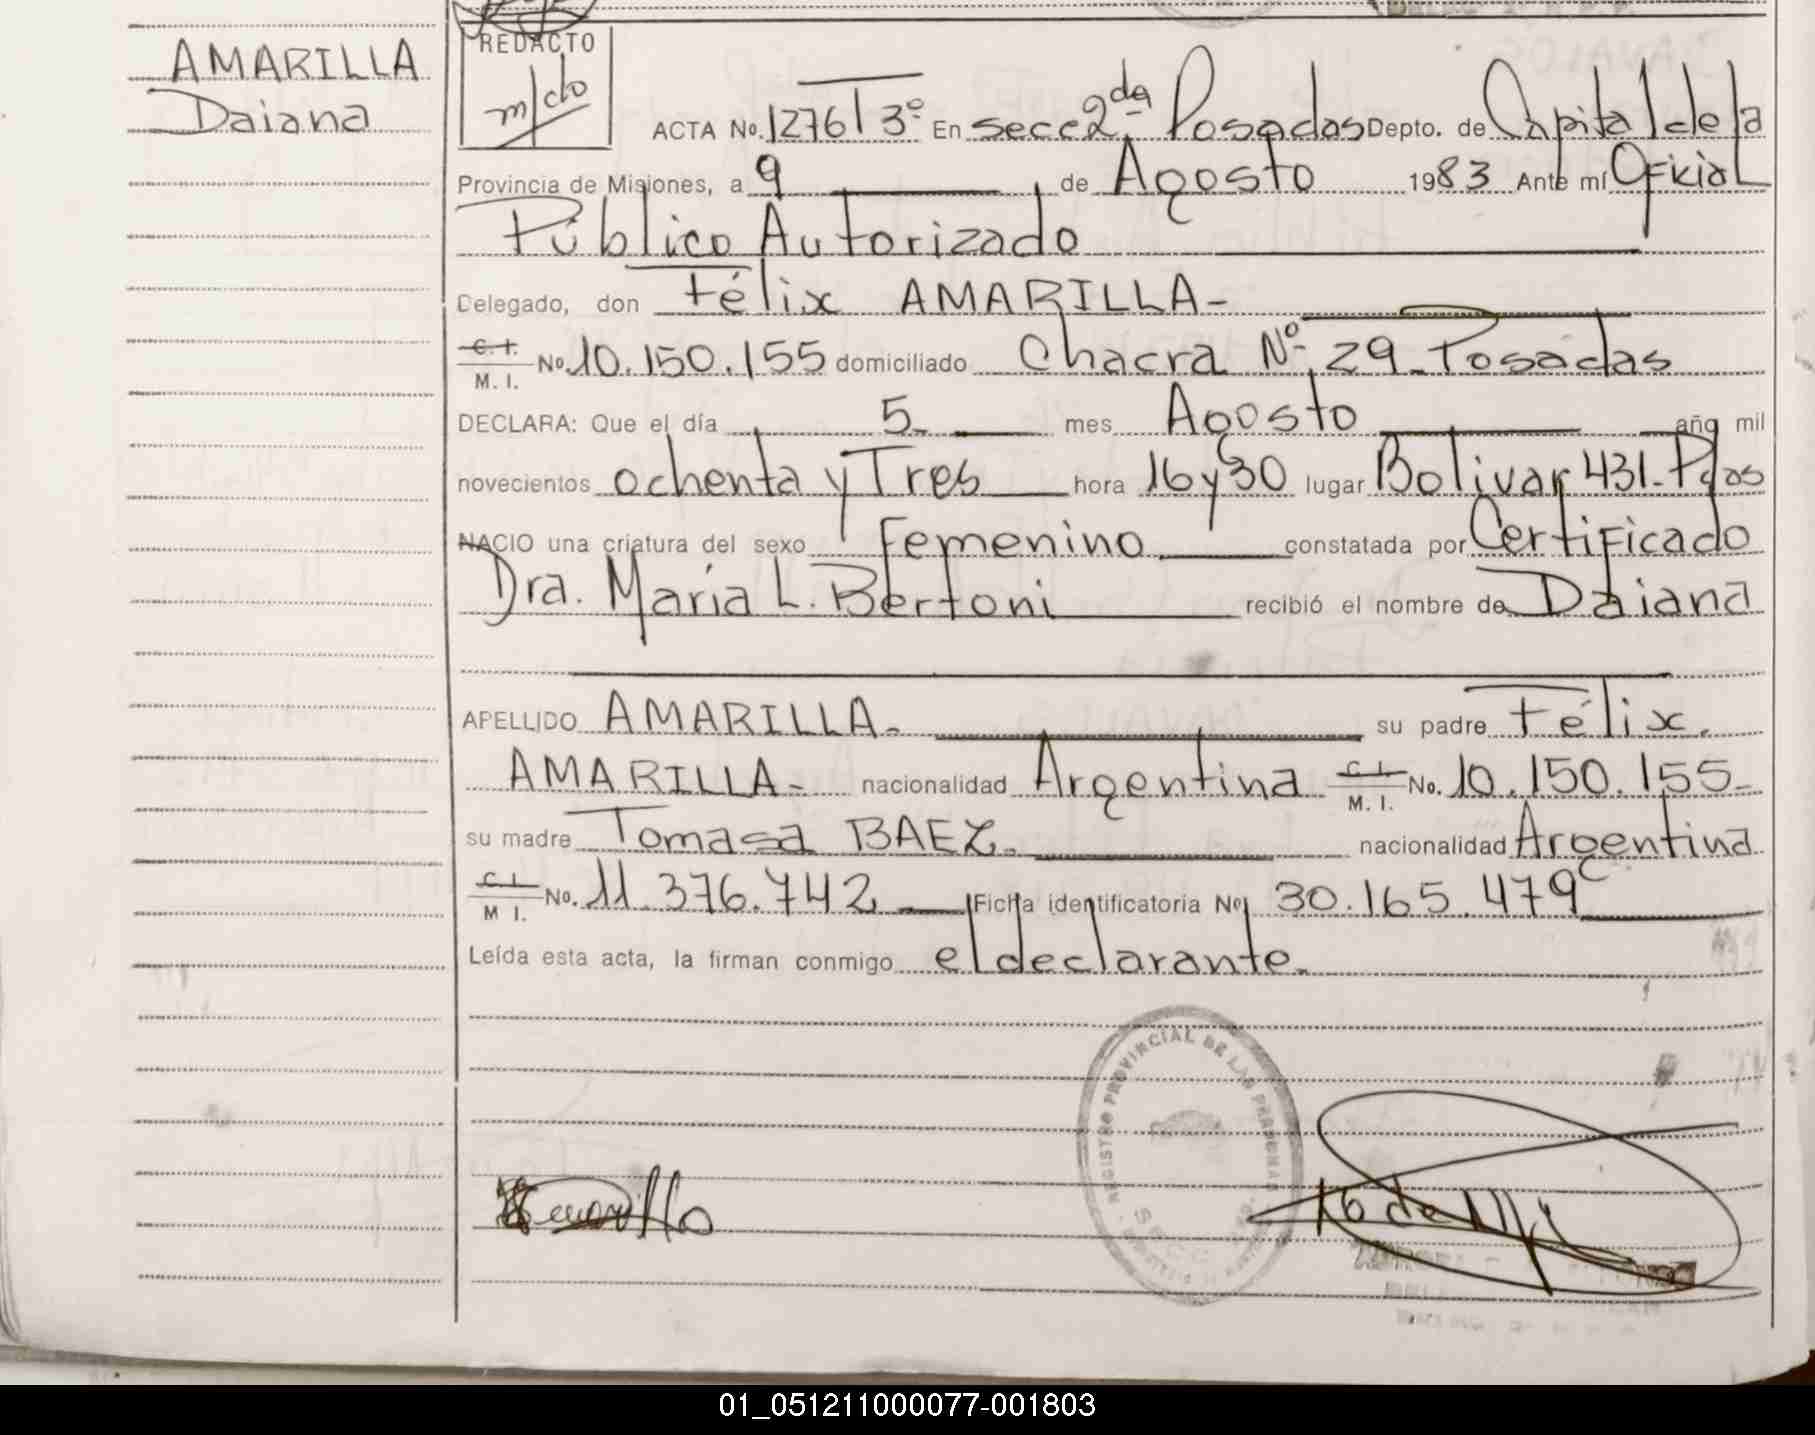 AMARILLA
Daiana
REDACTO
m/do
ACTA No. 1276 T 3º En secc 2da. Posadas Depto. de Capital de la
Provincia de Misiones, a 9 de Agosto 1983 Ante mí Oficial
Público Autorizado
Delegado, don Félix AMARILLA-
C. I.
M. I. No. 10.150.155 domiciliado Chacra Nº 29 - Posadas
DECLARA: Que el día 5 mes Agosto año mil
novecientos ochenta y Tres hora 16 y 30 lugar Bolivar 431 - Pdas
NACIO una criatura del sexo Femenino constatada por Certificado
Dra. María L. Bertoni recibió el nombre de Daiana
APELLIDO AMARILLA- su padre Félix.
AMARILLA- nacionalidad Argentina C. I. M. I. No. 10.150.155-
su madre Tomasa BAEZ. nacionalidad Argentina
C. I. M. I. No. 11.376.742 Ficha identificatoria No 30.165.479
Leída esta acta, la firman conmigo el declarante.
REGISTRO PROVINCIAL DE LAS PERSONAS
SECC.
01_051211000077-001803